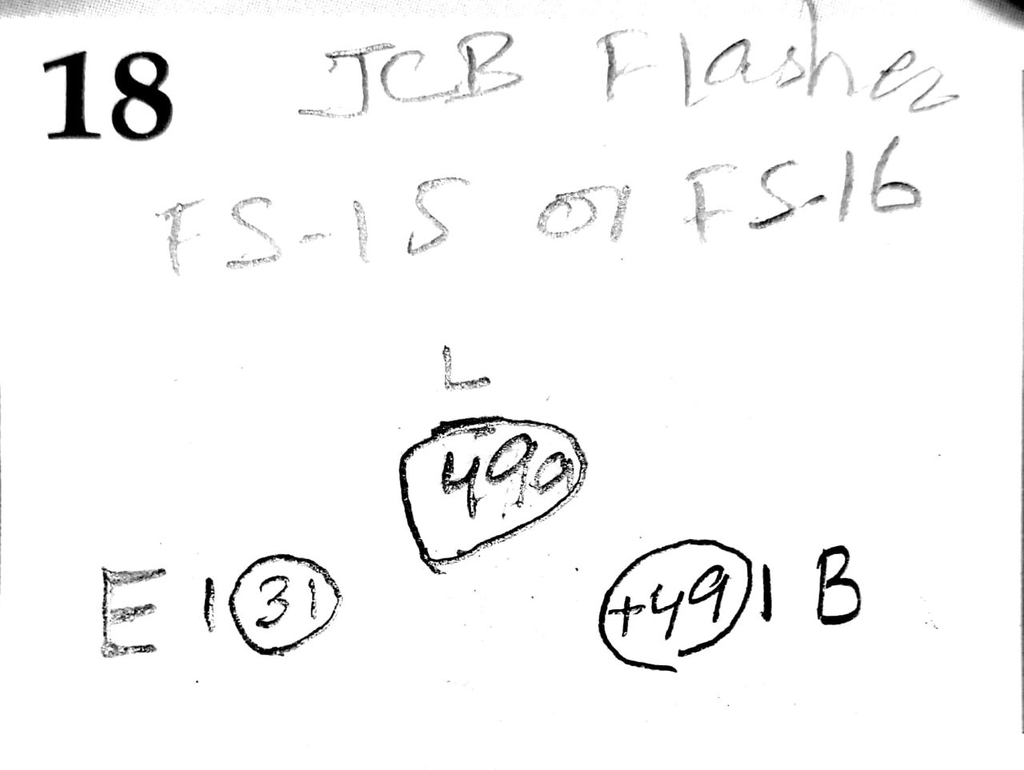 18 JCB Flasher
FS-15 or FS-16
L
49a
E 31
+49 B